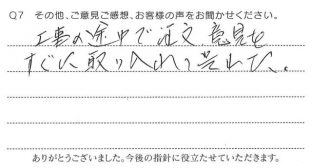 Q7 その他、ご意見ご感想、お客様の声をお聞かせください。
工事の途中で注文 意見を
すぐに取り入れて共れた。
ありがとうございました。今後の指針に役立たせていただきます。